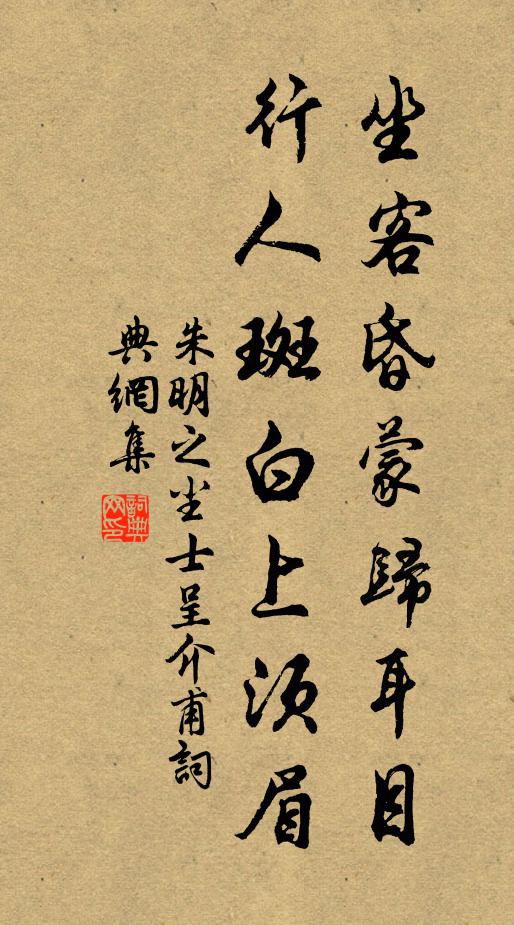 坐客昏蒙歸耳目
行人斑白上須眉
朱明之尘士呈介甫詞
典網集
詞典
网印